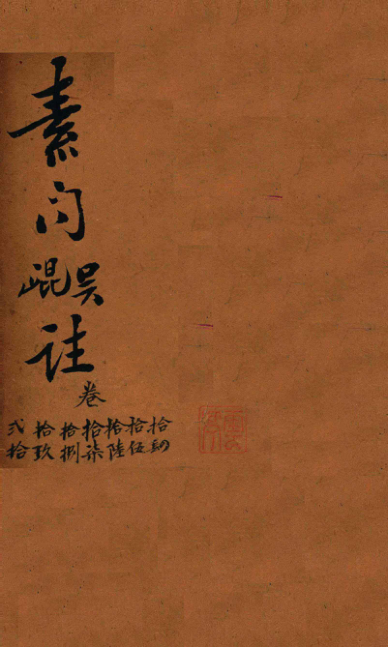 素問吳崐註
卷
拾四
拾伍
拾陸
拾柒
拾捌
拾玖
弍拾